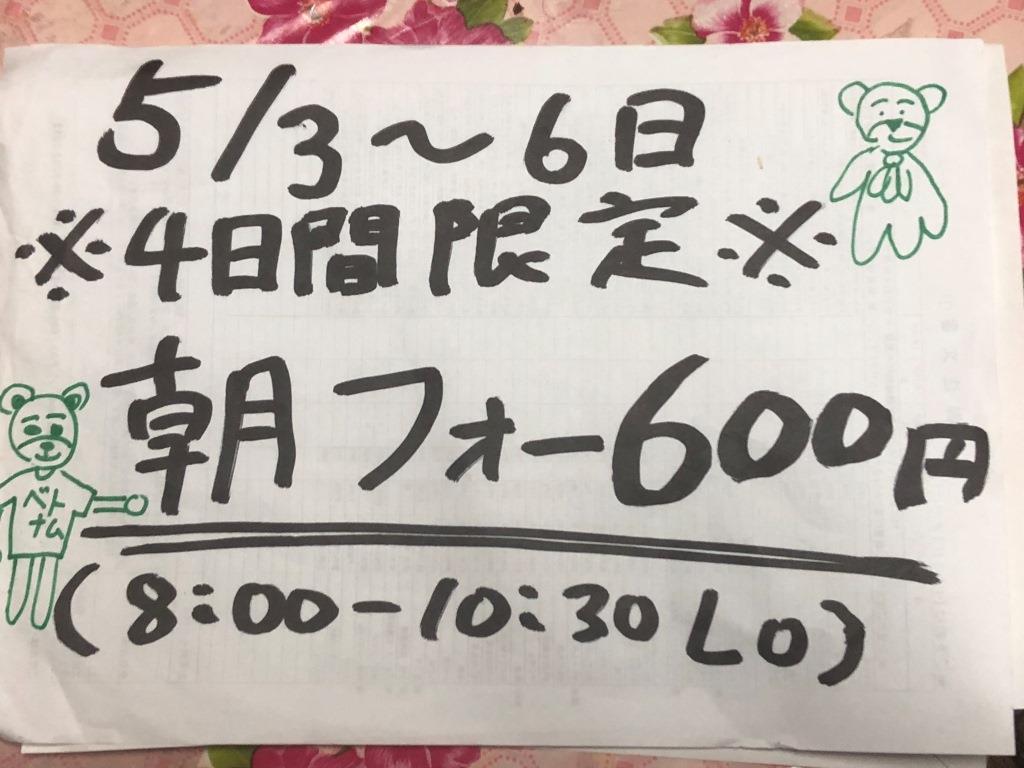 5/3～6日
※4日間限定※
朝フォー600円
(8:00-10:30 LO)
ベト
ナム